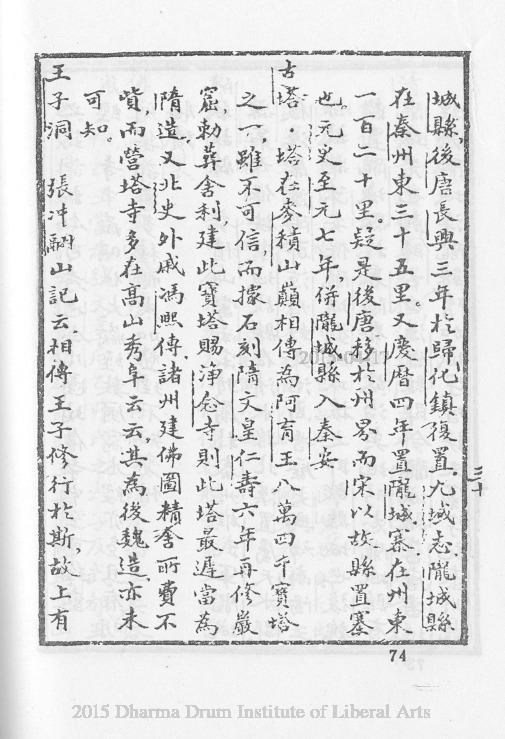 城縣，後唐長興三年於歸化鎮復置。九域志：隴城縣
在秦州東三十五里。又慶曆四年置隴城寨在州東
一百二十里。疑是後唐移於州界而宋以故縣置寨
也。元史至元七年，併隴城縣入秦安
古塔．塔在麥積山巔相傳為阿育王八萬四千寶塔
之一，雖不可信而據石刻隋文皇仁壽六年再修巖
窟勅葬舍利建此寶塔賜淨念寺則此塔最遲當為
隋造，又北史外戚馮熙傳，諸州建佛圖精舍所費不
貲，而營塔寺多在高山秀阜云云。其為後魏造亦未
可知。
王子洞　張冲嗣山記云：相傳王子修行於斯，故上有
三十
74
2015 Dharma Drum Institute of Liberal Arts